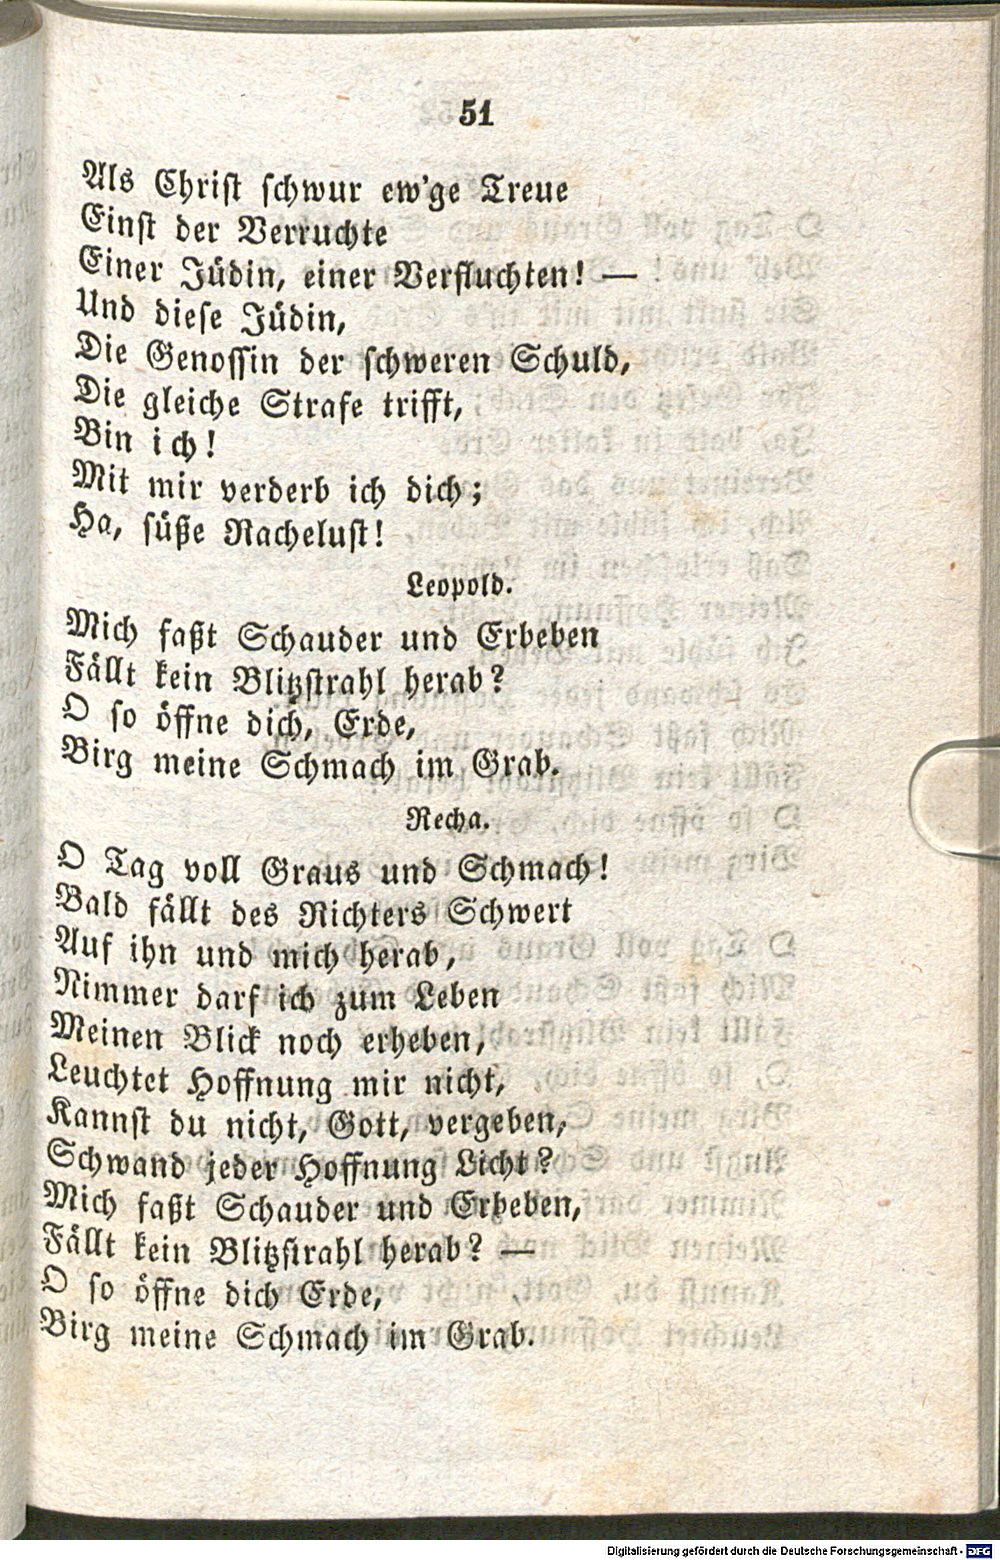 51
Als Christ schwur ew'ge Treue
Einst der Verruchte
Einer Jüdin, einer Verfluchten! —
Und diese Jüdin,
Die Genossin der schweren Schuld,
Die gleiche Strafe trifft,
Bin ich!
Mit mir verderb ich dich;
Ha, süße Rachelust!
Leopold.
Mich faßt Schauder und Erbeben
Fällt kein Blitzstrahl herab?
O so öffne dich, Erde,
Birg meine Schmach im Grab.
Recha.
O Tag voll Graus und Schmach!
Bald fällt des Richters Schwert
Auf ihn und mich herab,
Nimmer darf ich zum Leben
Meinen Blick noch erheben,
Leuchtet Hoffnung mir nicht,
Kannst du nicht, Gott, vergeben,
Schwand jeder Hoffnung Licht?
Mich faßt Schauder und Erbeben,
Fällt kein Blitzstrahl herab? —
O so öffne dich Erde,
Birg meine Schmach im Grab.
Digitalisierung gefördert durch die Deutsche Forschungsgemeinschaft - DFG